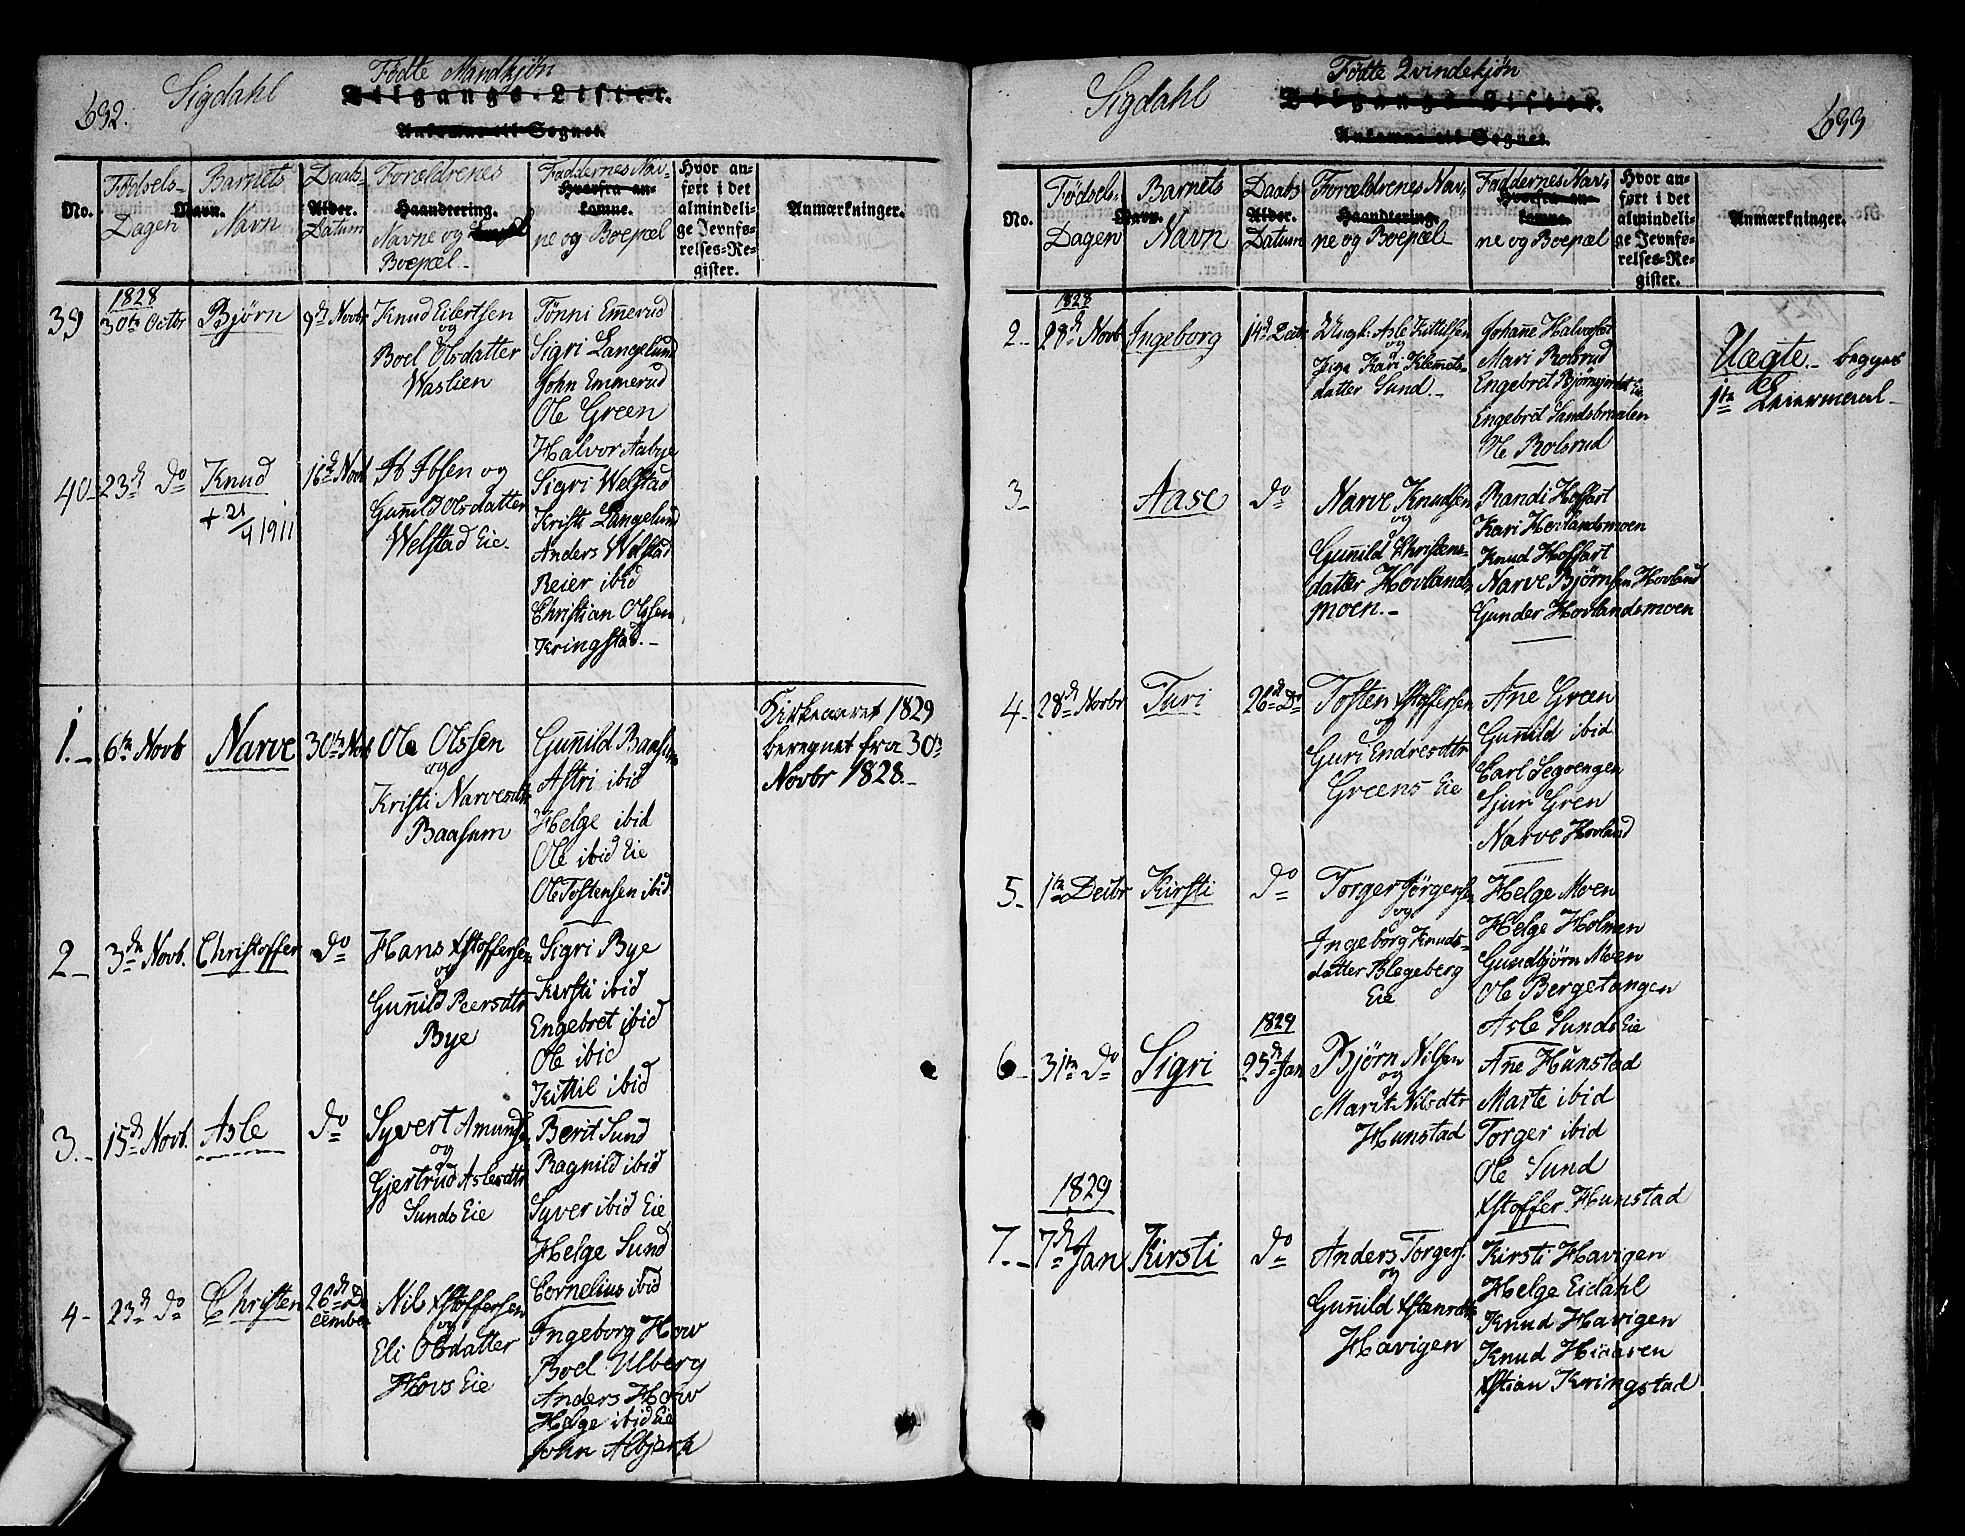 632.
Sigdahl
Fødte Mandkjøn
Tilgangs-Lister.
Ankomne til Sognet.
No.
Fødsels-
Dagen
Navn.
Barnets
Navn
Daabs-
Alder.
Datum
Forældrenes
Haandtering.
Navne og
Boepæl
Faddernes Nav-
Hvorfra an-
komne.
ne og Boepæl
Hvor an-
ført i det
almindeli-
ge Jevnfø-
relses-Re-
gister.
Anmærkninger.
39
1828
30te Octbr
Bjørn
9de Novbr
Knud Eilertsen
og
Boel Olsdatter
Waslien
Tønni Emerud
Sigri Langelund
John Emmerud
Ole Green
Halvor Aabye
40
23d do
Knud
+ 21/4 1911
16d Novb
Ib Ibsen og
Gunild Olsdatter
Welstad Eie.
Sigri Welstad
Kristi Langelund
Anders Welstad
Reier ibid
Christian Olssen
Kringstad.
1.
6te Novb
Narve
30te Novb
Ole Olssen
og
Kristi Narvesdtr
Baasum
Gunild Baasum
Astri ibid
Helge ibid
Ole ibid Eie
Ole Tostensen ibid
Kirkeaaret 1829
beregnet fra 30te
Novbr 1828.
2
3die Novb.
Christoffer
do
Hans Xstoffersen
og
Gunild Peersdtr
Bye
Sigri Bye
Kirsti ibid
Engebret ibid
Ole ibid
Kittil ibid
3.
15de Novb.
Asle
do
Syvert Amunds.
og
Gjertrud Aslesdtr
Sunds Eie
Berit Sund
Ragnild ibid
Syver ibid Eie
Helge Sund
Cornelius ibid
4
23d do
Christen
26de De
cember
Nil Xstoffersen
og
Eli Olsdatter
Hovs Eie
Ingeborg How
Boel Ulberg
Anders How
Helge ibid Eie
John Albjerk
Sigdahl
Fødte Qvindekjøn
Tilgangs-Lister.
Ankomne til Sognet.
633
No.
Fødsels-
Dagen
Navn.
Barnets
Navn
Daabs
Alder.
Datum
Forældrenes Nav-
Haandtering.
ne og Boepæl
Faddernes Nav-
Hvorfra an-
komne.
ne og Boepæl
Hvor an-
ført i det
almindeli-
ge Jevnfø-
relses-Re-
gister.
Anmærkninger.
2
1828
28d Novb
Ingeborg
14d Decbr
Ungk. Asle Kittilsen
og
Pige Kari Klemets-
datter Sund.
Johane Halvorsen
Mari Rolsrud
Engebret Eie
Engebret Sandsbraaten
Ole Rolsrud
Uægte. begges
1te Leiermaal
3
Aase
do
Narve Knudsen
og
Gunild Christens-
datter Hovlands
moen.
Randi Hoffart
Kari Hovlandsmoen
Knud Hoffart
Narve Bjørnsen Hovland
Gunder Hovlandsmoen
4
28d Novbr
Turi
26d Do
Tosten Xstoffersen
og
Guri Endresdtr
Greens Eie
Ane Green
Gunild ibid
Carl Segoengen
Sjur Gren
Narve Hovland
5
1te Decbr
Kirsti
do
Torger Jørgensen
og
Ingeborg Knuds-
datter Blegeberg
Eie
Helge Moen
Helge Holmen
Gundbjørn Moen
Ole Bergetangen
Asle Sunds Eie
6
31te do
Sigri
1829
25d Jan
Bjørn Nilsen
og
Marit Nilsdtr
Hunstad
Ane Hunstad
Marte ibid
Torger ibid
Ole Sund
Xstoffer Hunstad
7.
1829
7d Jan
Kirsti
do
Anders Torgers.
og
Gunild Xstensdtr
Havigen
Kirsti Havigen
Helge Eidahl
Knud Havigen
Knud Hiaaren
Xstian Kringstad